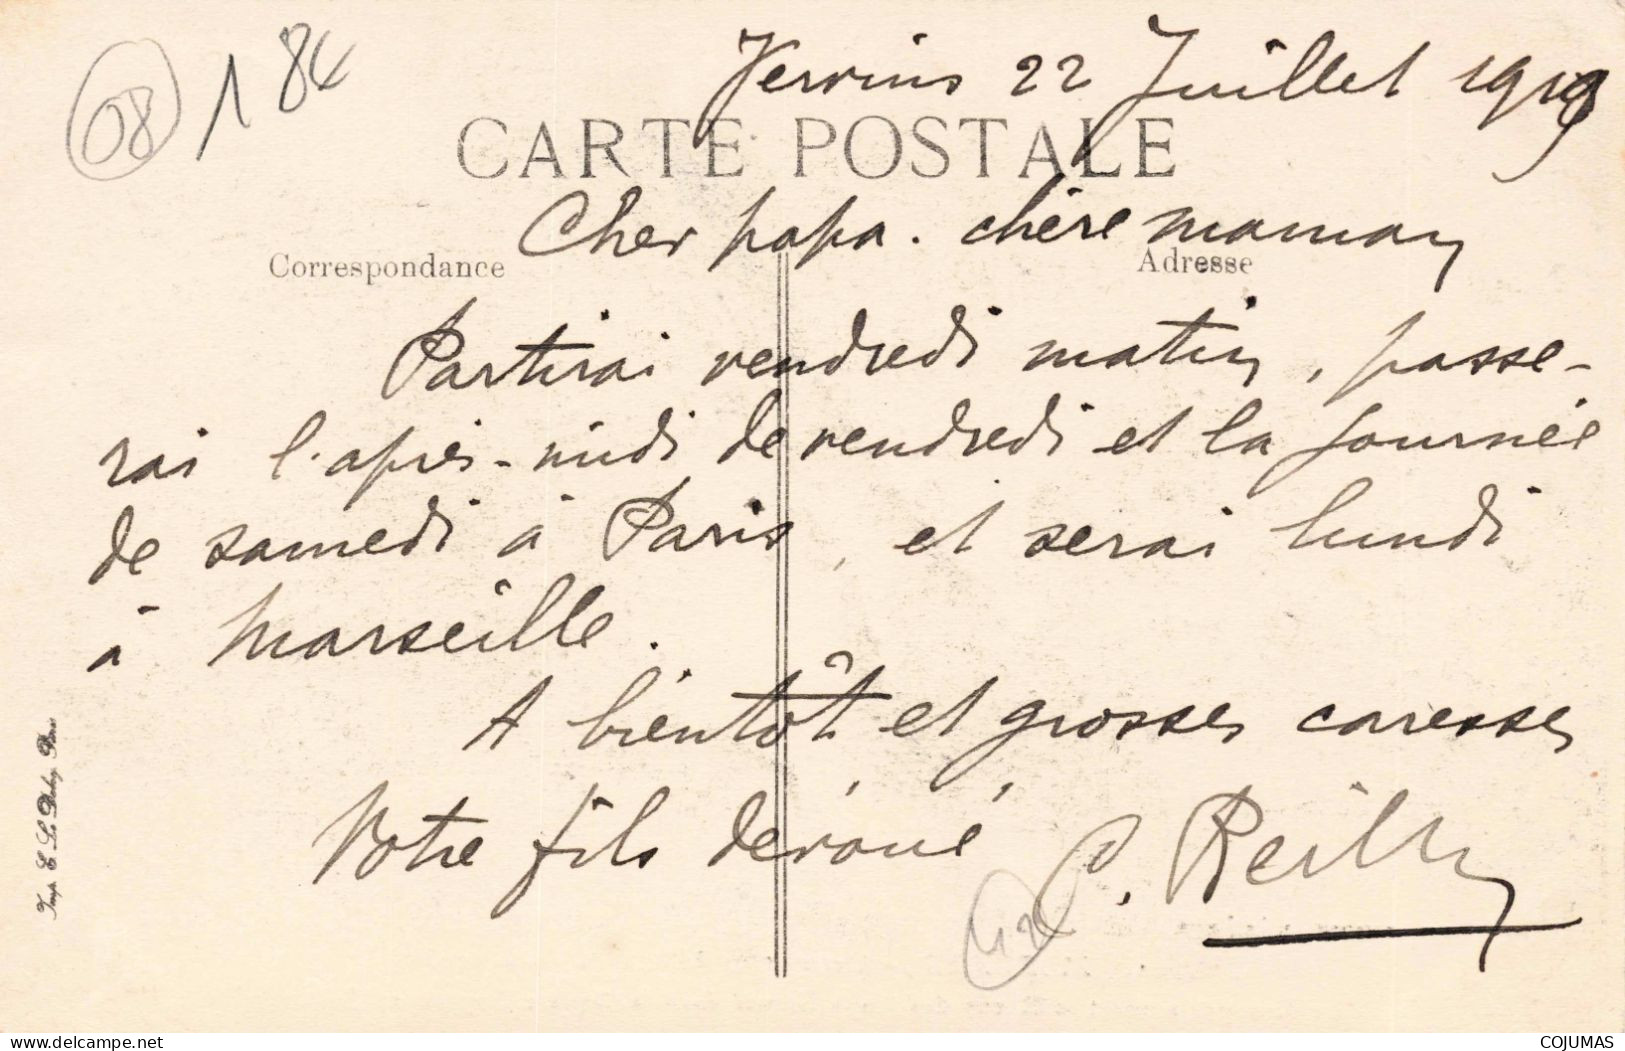 08 184
Vervins 22 Juillet 1919
CARTE POSTALE
Cher papa. chère maman
Correspondance
Adresse
Partirai vendredi matin, passe-
rai l'après-midi de vendredi et la journée
de samedi à Paris, et serai lundi
à Marseille.
A bientôt et grosses caresses
Votre fils dévoué,
Reilly
Imp. E. Le Deley, Paris
delcampe.net
COJUMAS